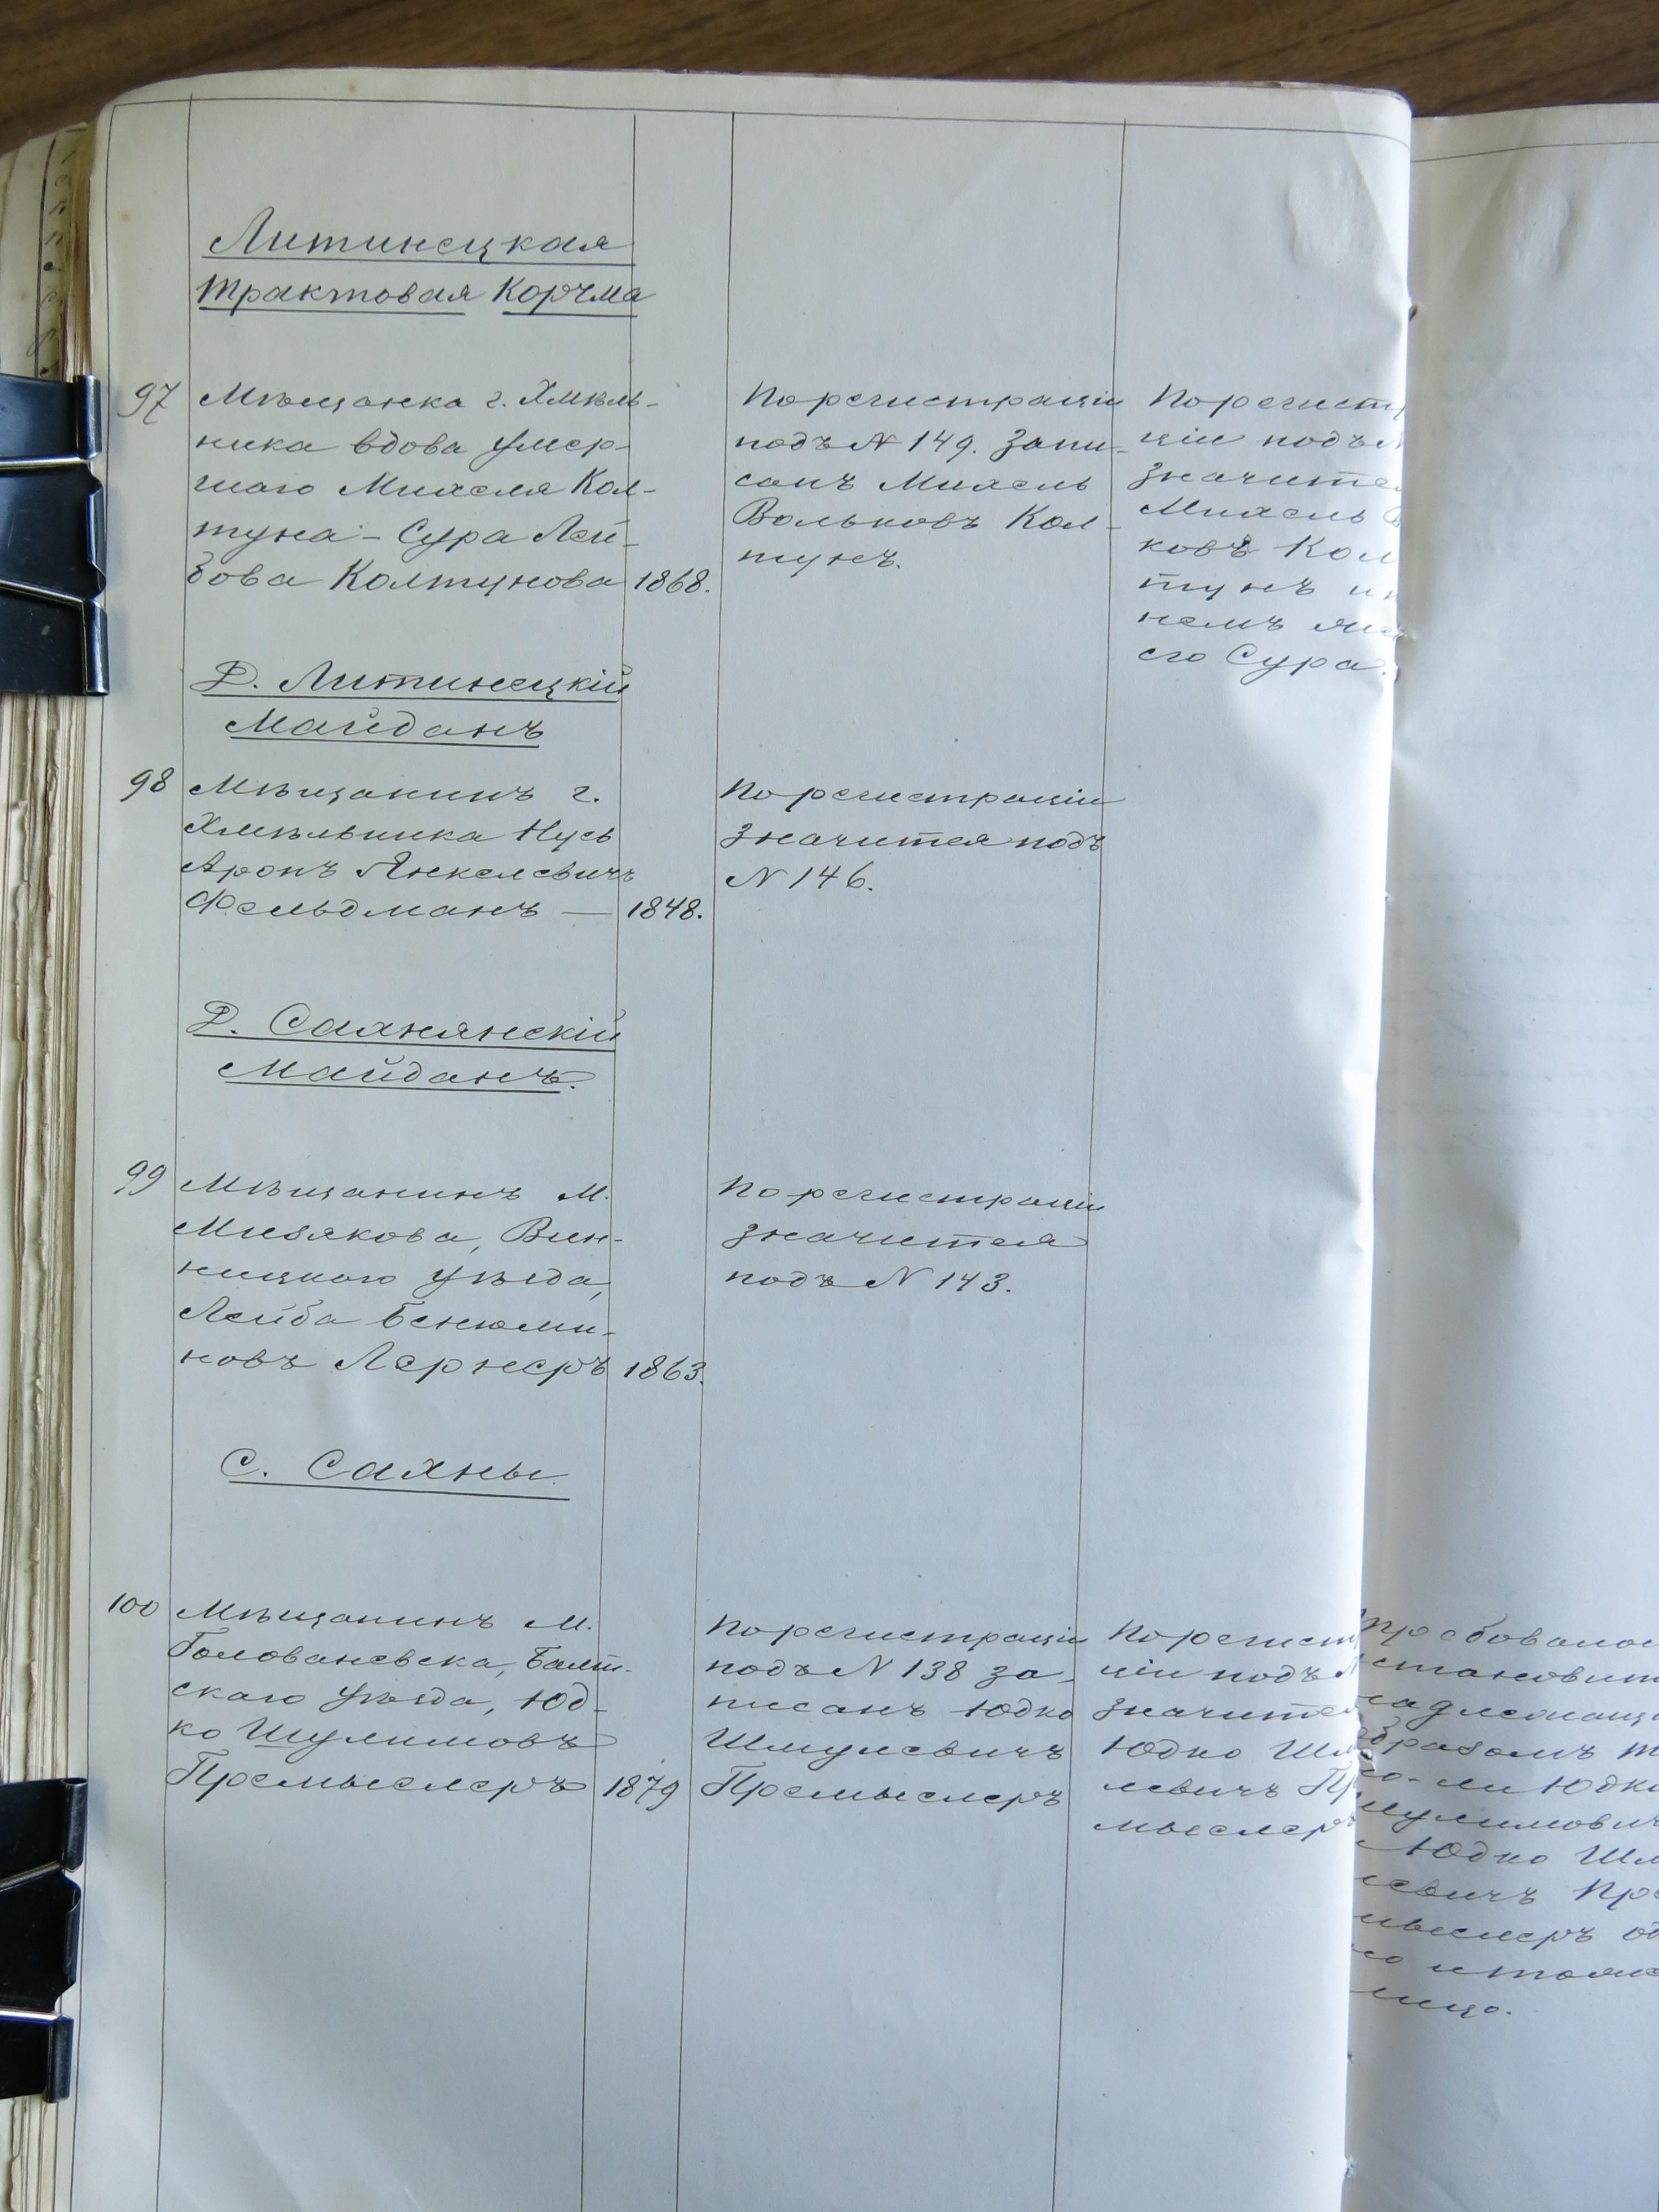 Литинецкая
трактовая Корчма
97
Мѣщанка г. Хмѣль-
ника вдова умер-
шаго Михеля Кол-
туна - Сура Лей-
бова Колтунова 1868.
По регистраціи
подъ N 149. запи-
санъ Михель
Вольковъ Кол-
тунъ.
По регист
ціи подъ N
значите
Михель В
ковъ Кол
тунъ и
немъ
его Сура.
Д. Литинецкій
Майданъ
98
Мѣщанинъ г.
Хмѣльника Нусь
Аронъ Янкелевичъ
Фельдманъ — 1848.
По регистраціи
значится подъ
N 146.
Д. Сахнянскій
Майданъ.
99
Мѣщанинъ м.
Мизякова, Вин-
ницкаго уѣзда,
Лейба Бенюми-
новъ Лернеръ 1863.
По регистраціи
значится
подъ N 143.
С. Сахны.
100
Мѣщанинъ м.
Голованевска, Балт-
скаго уѣзда, Юд-
ко Шулимовъ
Премыслеръ 1879
По регистраціи
подъ N 138 за-
писанъ Юдко
Шмулевичъ
Премыслеръ
По регист
ціи подъ N
значите
Юдко Шм
левичъ Пр
мыслеръ
становит
бразомъ т
о-ли Юдко
улимович
Юдко Шм
евичъ Пре
мыслеръ од
о и тоже
лицо.